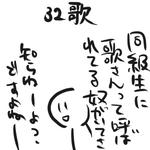 32 歌
同級生に
歌さんって呼ば
れてる奴がいてさ
知らねーよっ、
ですよねー